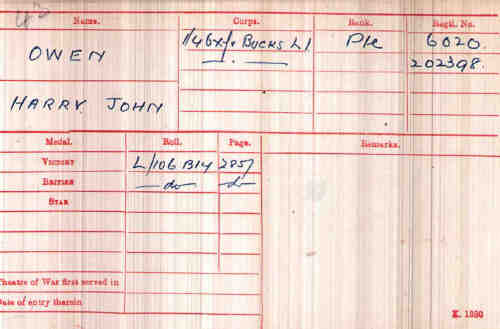 Name. Corps. Rank. Regtl. No.
OWEN 1/4 Oxf. & Bucks L.I. Pte 6020.
202398.
HARRY JOHN
Medal. Roll. Page. Remarks.
VICTORY L/106 B14 2857
BRITISH —do— —do—
STAR
Theatre of War first served in
Date of entry therein
K. 1380